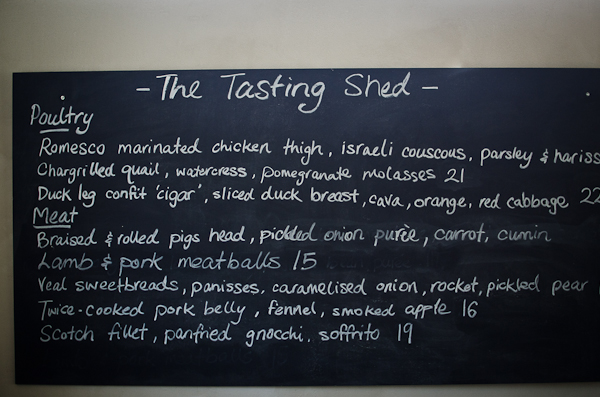 - The Tasting Shed -
Poultry
Romesco marinated chicken thigh, israeli couscous, parsley & hariss
Chargrilled quail, watercress, pomegranate molasses 21
Duck leg confit 'cigar', sliced duck breast, cava, orange, red cabbage 22
Meat
Braised & rolled pigs head, pickled onion purée, carrot, cumin
Lamb & pork meatballs 15
Veal sweetbreads, panisses, caramelised onion, rocket, pickled pear
Twice-cooked pork belly, fennel, smoked apple 16
Scotch fillet, panfried gnocchi, soffrito 19